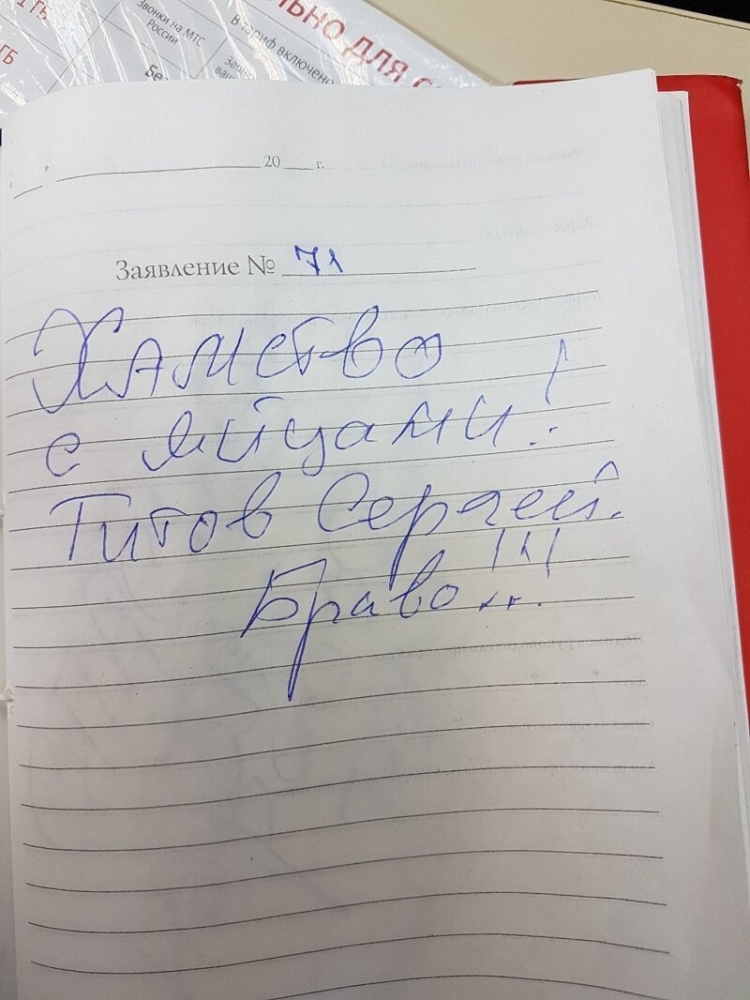 1 ГБ
ГБ
Звонки на МТС
России
В тариф включено
ЛЬНО ДЛЯ С
Бе
" " 20 г.
Заявление № 71
ХАМство
с яйцами!
Титов Сергей.
Браво!!!